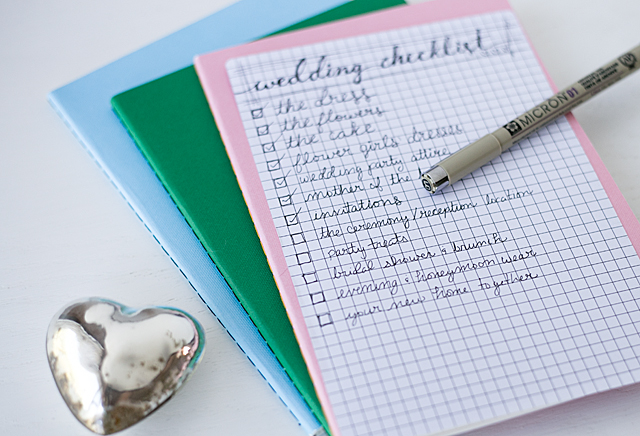 wedding checklist
the dress
the flowers
the cake
flower girl's dresses
wedding party attire
mother of the
invitations
the ceremony/reception location
party treats
bridal shower & brunch
evening & honeymoon wear
your new home together
MICRON 01